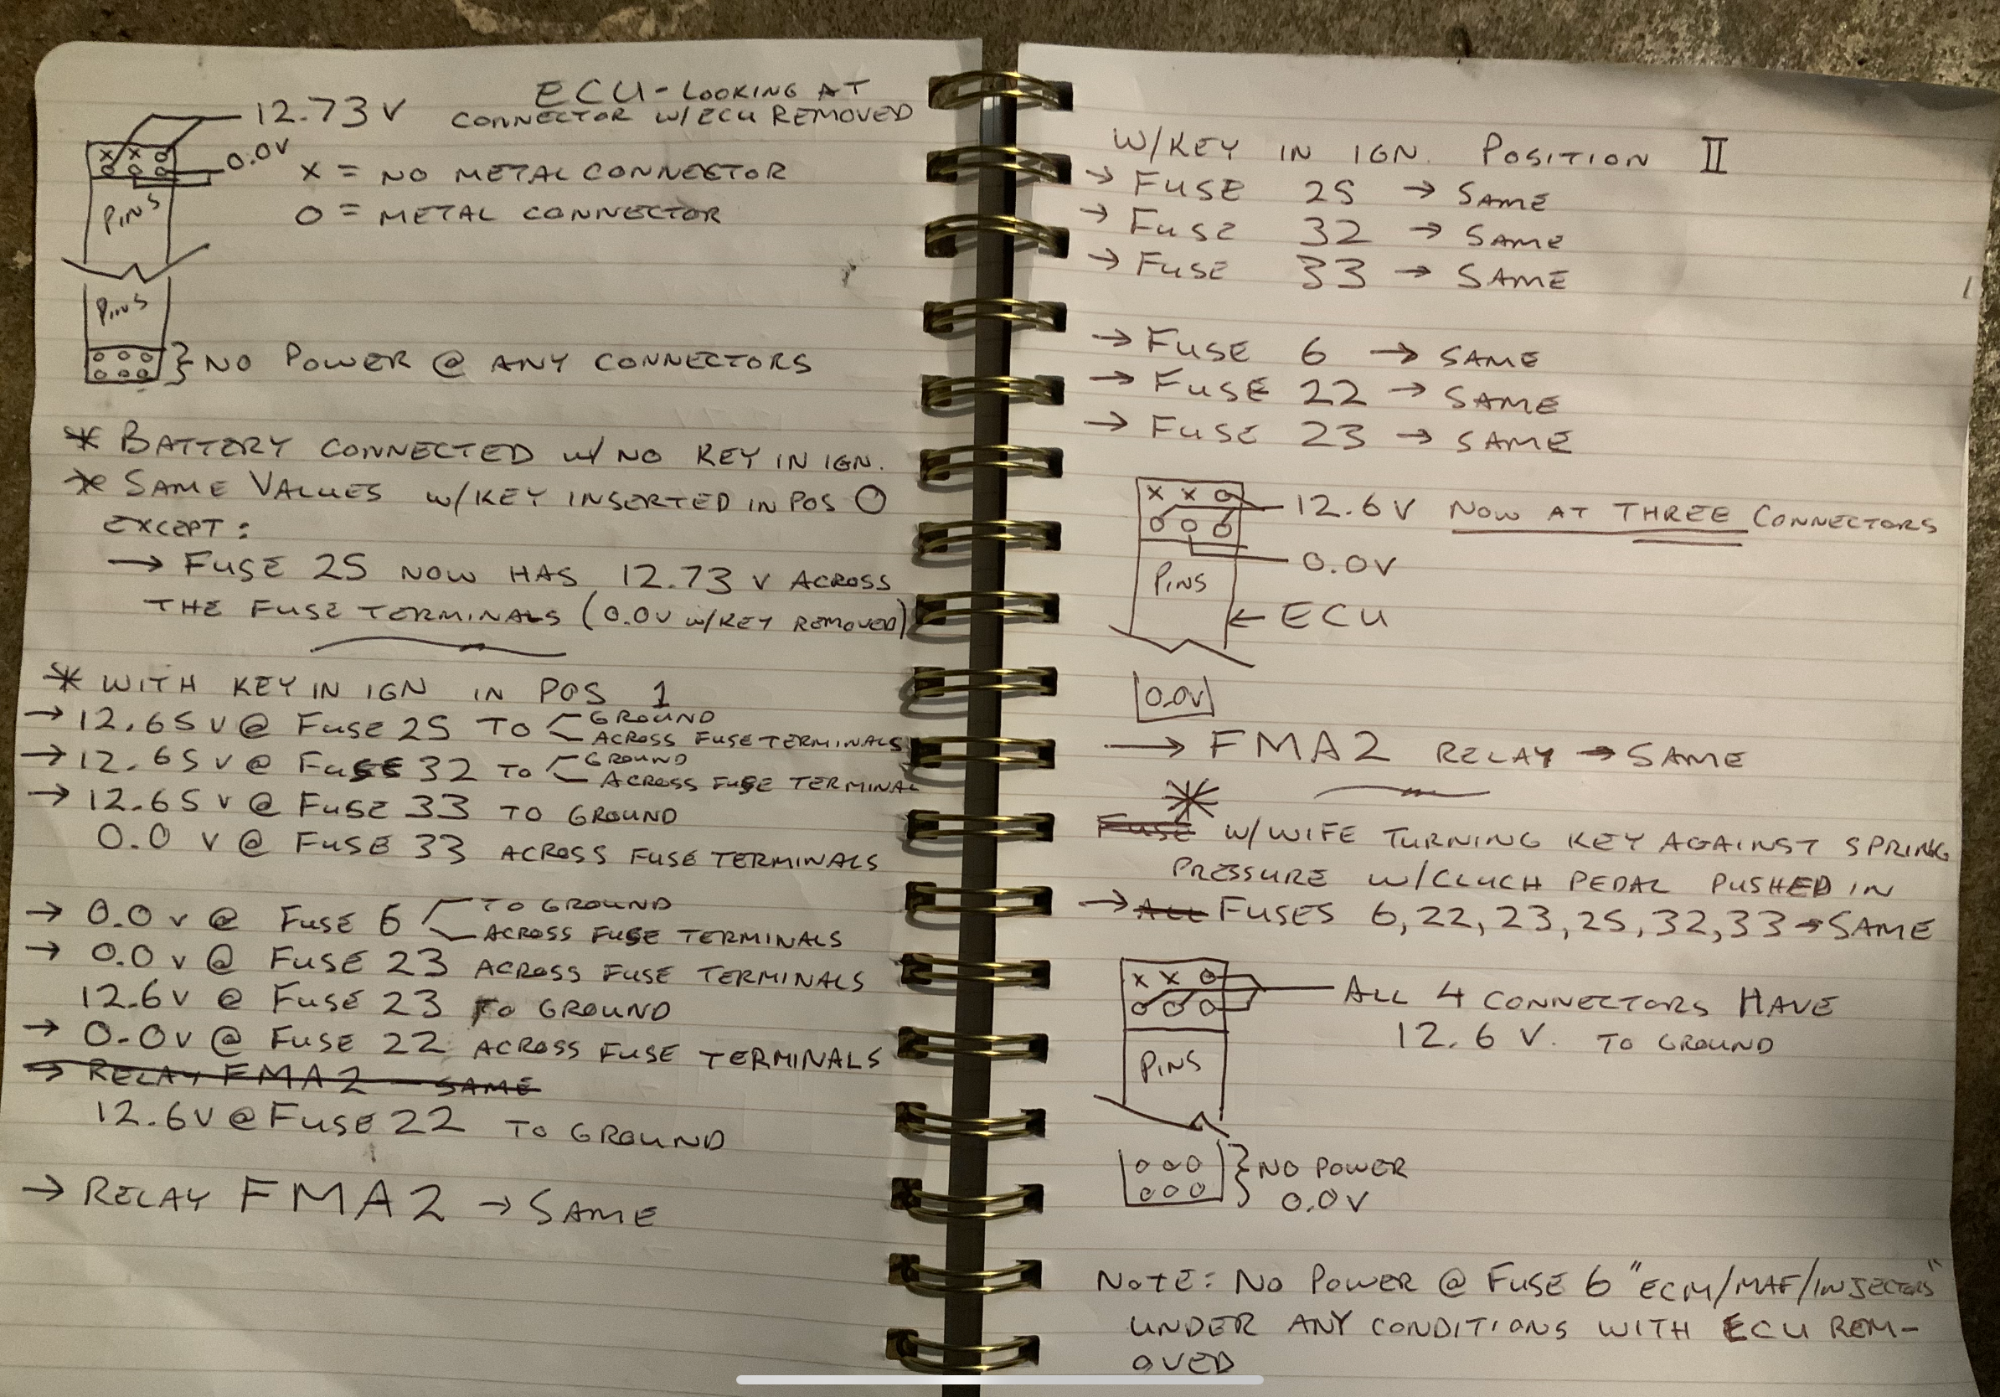 ECU - LOOKING AT
CONNECTOR W/ECU REMOVED
12.73 V
X X O
O O O
0.0V
X = NO METAL CONNECTOR
O = METAL CONNECTOR
PINS
PINS
O O O
O O O
} NO POWER @ ANY CONNECTORS
* BATTERY CONNECTED W/ NO KEY IN IGN.
* SAME VALUES W/KEY INSERTED IN POS O
EXCEPT:
→ FUSE 25 NOW HAS 12.73 V ACROSS
THE FUSE TERMINALS (0.0V W/KEY REMOVED)
* WITH KEY IN IGN IN POS 1
→ 12.65 V @ FUSE 25 TO < GROUND
ACROSS FUSE TERMINALS
→ 12.65 V @ FUSE 32 TO < GROUND
ACROSS FUSE TERMINAL
→ 12.65 V @ FUSE 33 TO GROUND
0.0 V @ FUSE 33 ACROSS FUSE TERMINALS
→ 0.0 V @ FUSE 6 < TO GROUND
ACROSS FUSE TERMINALS
→ 0.0 V @ FUSE 23 ACROSS FUSE TERMINALS
12.6V @ FUSE 23 TO GROUND
→ 0.0V @ FUSE 22 ACROSS FUSE TERMINALS
→ RELAY FMA2 - SAME
12.6V @ FUSE 22 TO GROUND
→ RELAY FMA2 → SAME
W/KEY IN IGN. POSITION II
→ FUSE 25 → SAME
→ FUSE 32 → SAME
→ FUSE 33 → SAME
→ FUSE 6 → SAME
→ FUSE 22 → SAME
→ FUSE 23 → SAME
X X O
O O O
12.6V NOW AT THREE CONNECTORS
0.0V
PINS
← ECU
0.0V
→ FMA2 RELAY → SAME
*
FUSE W/WIFE TURNING KEY AGAINST SPRING
PRESSURE W/CLUCH PEDAL PUSHED IN
→ ALL FUSES 6, 22, 23, 25, 32, 33 → SAME
X X O
O O O
ALL 4 CONNECTORS HAVE
12.6 V. TO GROUND
PINS
O O O
O O O
} NO POWER
0.0V
NOTE: NO POWER @ FUSE 6 "ECM/MAF/INJECTORS"
UNDER ANY CONDITIONS WITH ECU REM-
OVED